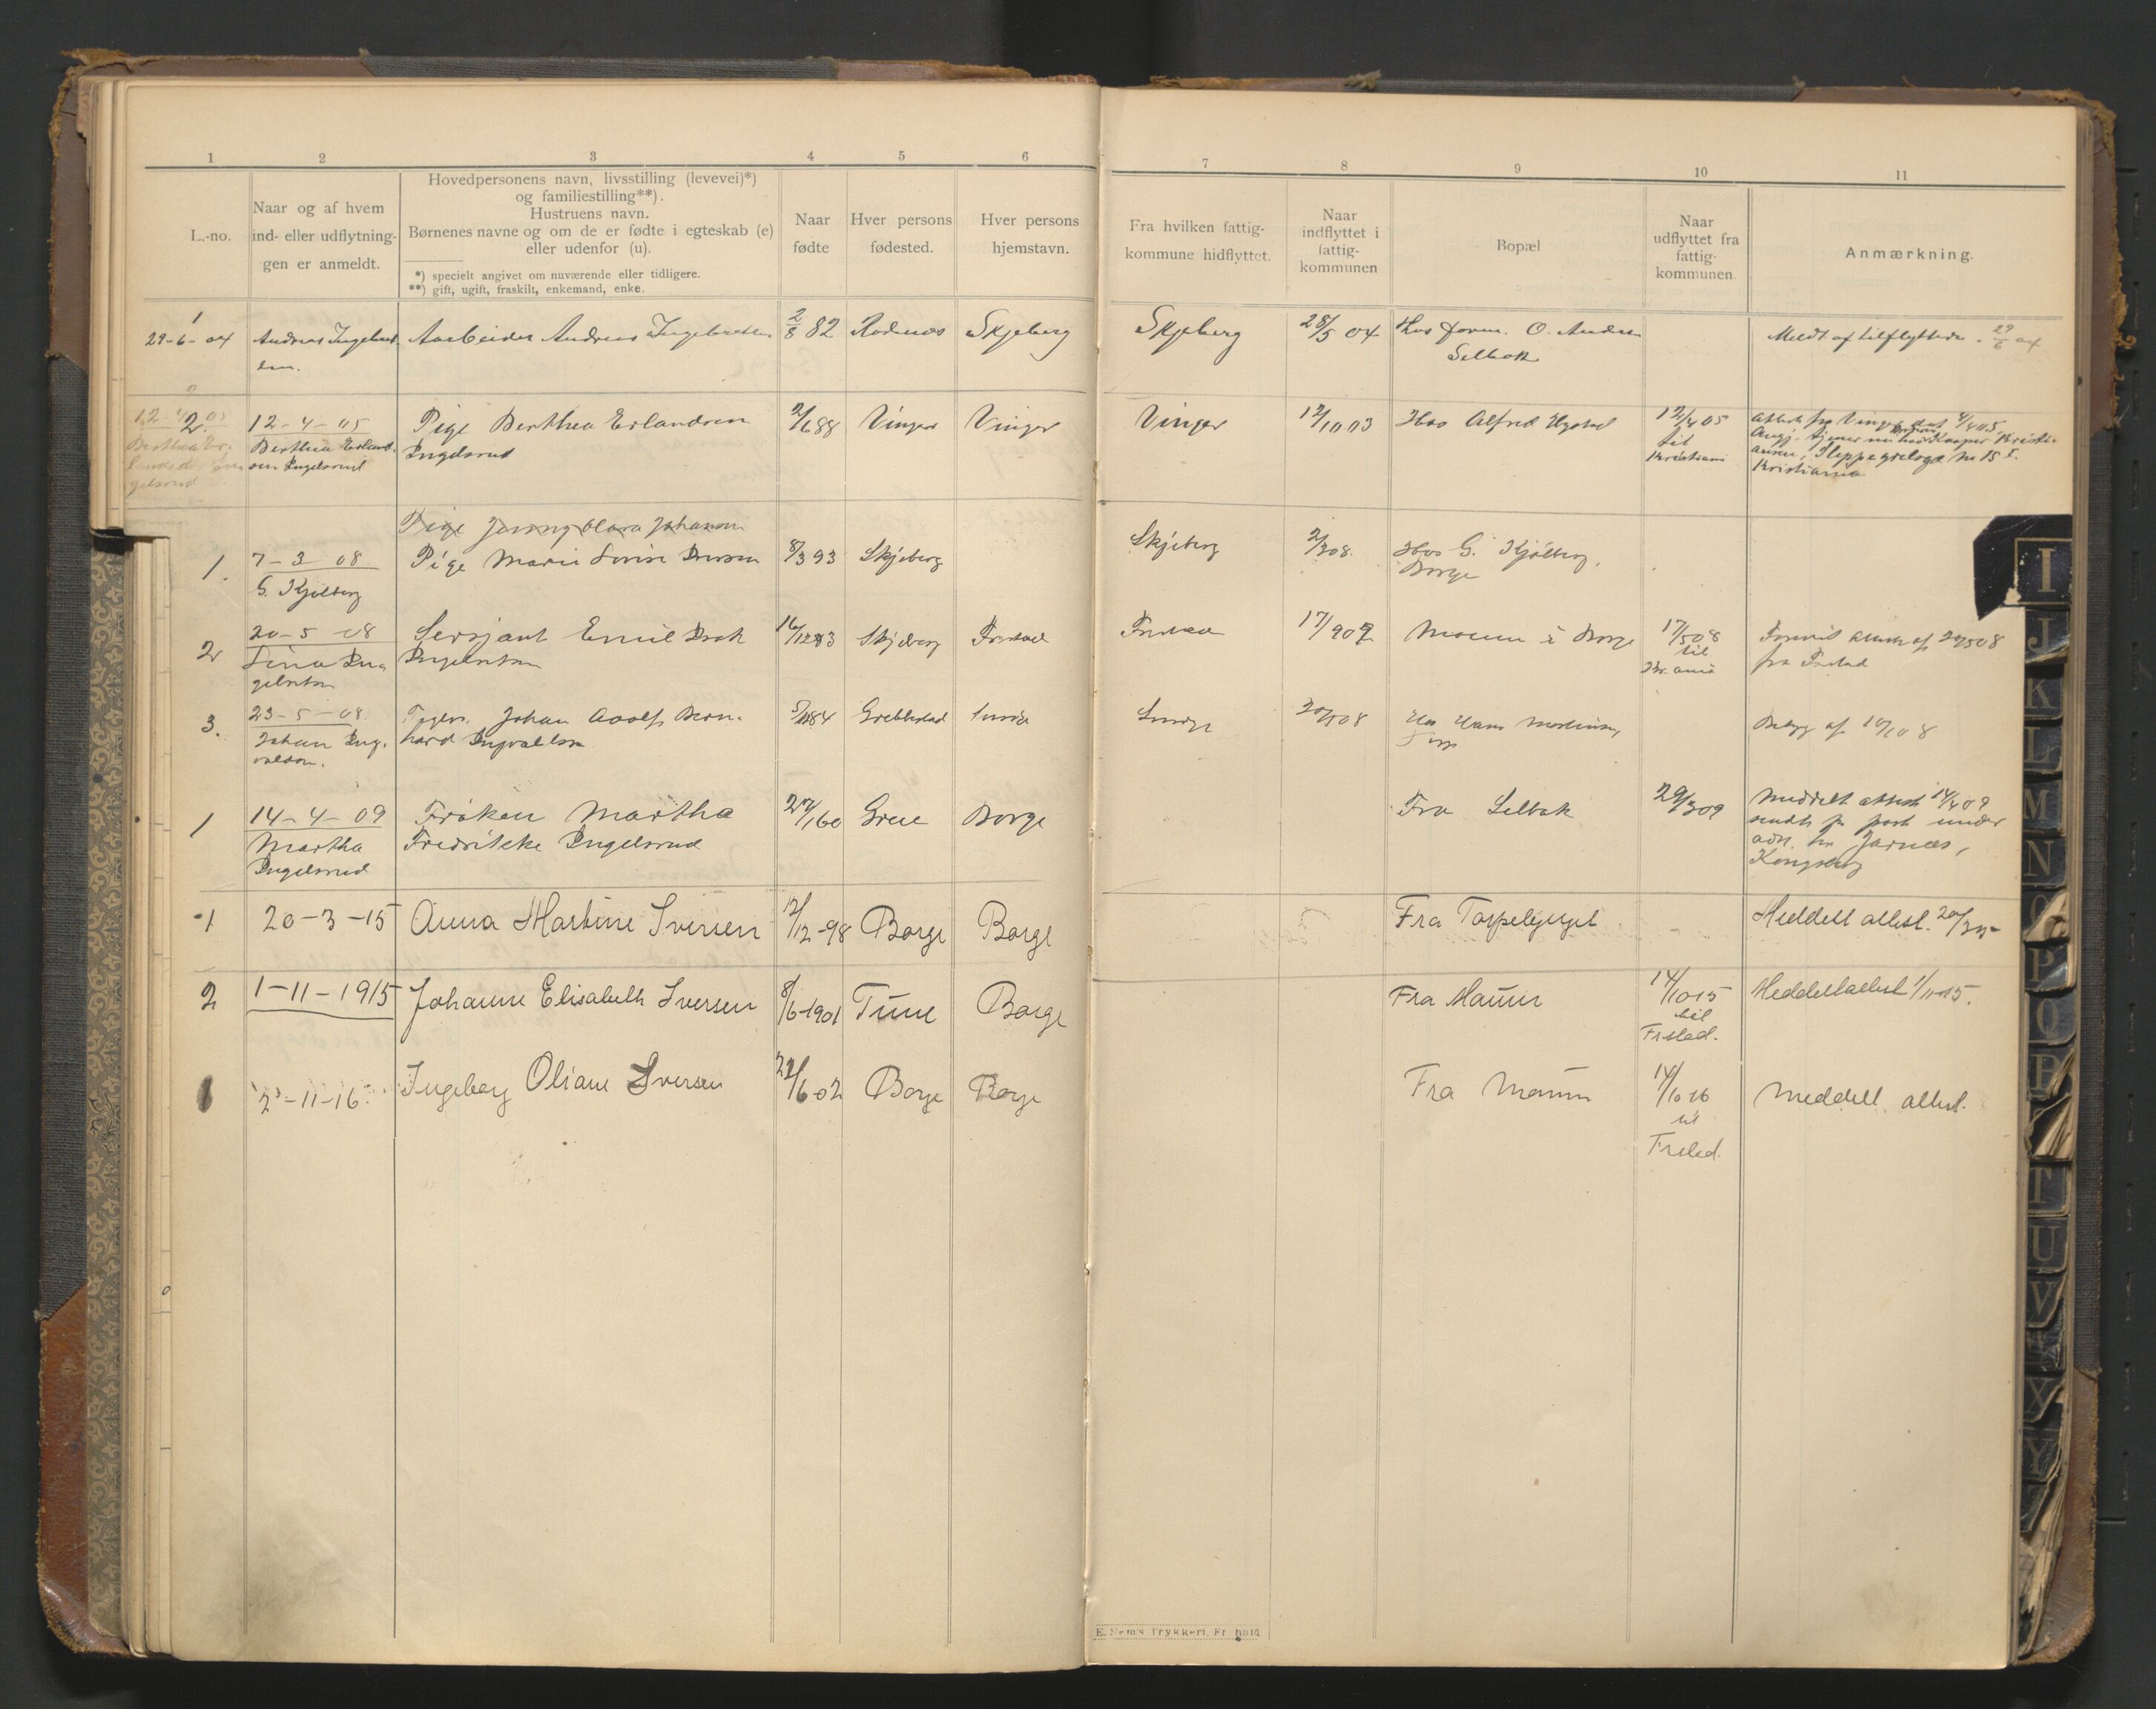 1 2 3 4 5 6 7 8 9 10 11
L.-no.
Naar og af hvem
ind- eller udflytnin-
gen er anmeldt.
Hovedpersonens navn, livsstilling (levevei)*)
og familiestilling**).
Hustruens navn.
Børnenes navne og om de er fødte i egteskab (e)
eller udenfor (u).
*) specielt angivet om nuværende eller tidligere.
**) gift, ugift, fraskilt, enkemand, enke.
Naar
fødte
Hver persons
fødested.
Hver persons
hjemstavn.
Fra hvilken fattig-
kommune hidflyttet.
Naar
indflyttet i
fattig-
kommunen
Bopæl
Naar
udflyttet fra
fattig-
kommunen.
Anmærkning.
1
29-6-04
Andreas Ingebret-
sen.
Aarbeider Andreas Ingebretsen
2/8 82
Rødenes
Skjeberg
Skjeberg
28/5 04
Hos form. O. Andersen
Selbak
Meldt af tilflyttede. 29/6 04
2.
12-4-05
Berthea Erland-
sen Ingelsrud
Pige Berthea Erlandsen
Ingelsrud
2/6 88
Vinger
Vinger
Vinger
12/10 03
Hos Alfred
12/4 05
til
Kristiania
Attest fra Vinger dat 4/4 05,
tjener nu hos Kasper Kristi-
ansen, No 15 I.
Kristiania
Pige Jenny Klara Johansen
1.
7-3 08
G. Kjølberg
Pige Marie Lovise Iversen
8/3 93
Skjeberg
Skjeberg
2/3 08.
Hos G. Kjølberg,
Borge
2
20-5-08
Lina In-
gebretsen
Sersjant Emil Isak
Ingebretsen
16/12 83
Skjeberg
Frstad
Frstad
17/9 07
Moum i Borge
17/5 08
til
Kr.ania
attest af 20/5 08
fra Frstad
3.
23-5-08.
Johan Ing-
valdsen.
Johan Adolf Bern-
hard Ingvaldsen
Grebbestad
Hos Hans Martinsen,
Torp
1
14-4-09
Martha
Ingelsrud
Frøken Martha
Fredrikke Ingelsrud
27/1 60
Grue
Borge
Fra Selbak
29/3 09
Meddelt attest 14/4 09
sendt pr post under
adr. Jarnæs,
Kongsberg
1
20-3-15
Anna Martine Iversen
12/12-98
Borge
Borge
Fra Torpebjerget
Meddelt attest. 20/3 15
2
1-11-1915
Johanne Elisabeth Iversen
8/6-1901
Tune
Borge
Fra Maum
14/10 15
til
Frstad.
Meddelt attest 1/11-15.
1
2-11-16.
Ingeborg Oliane Iversen
22/6-02
Borge
Borge
Fra Maum
14/10 16
til
Frstad.
Meddelt attest.
E. Sem's Trykkeri, Fr.hald
I
J
K
L
M
N
O
P
Q
R
T
U
V
X
Y